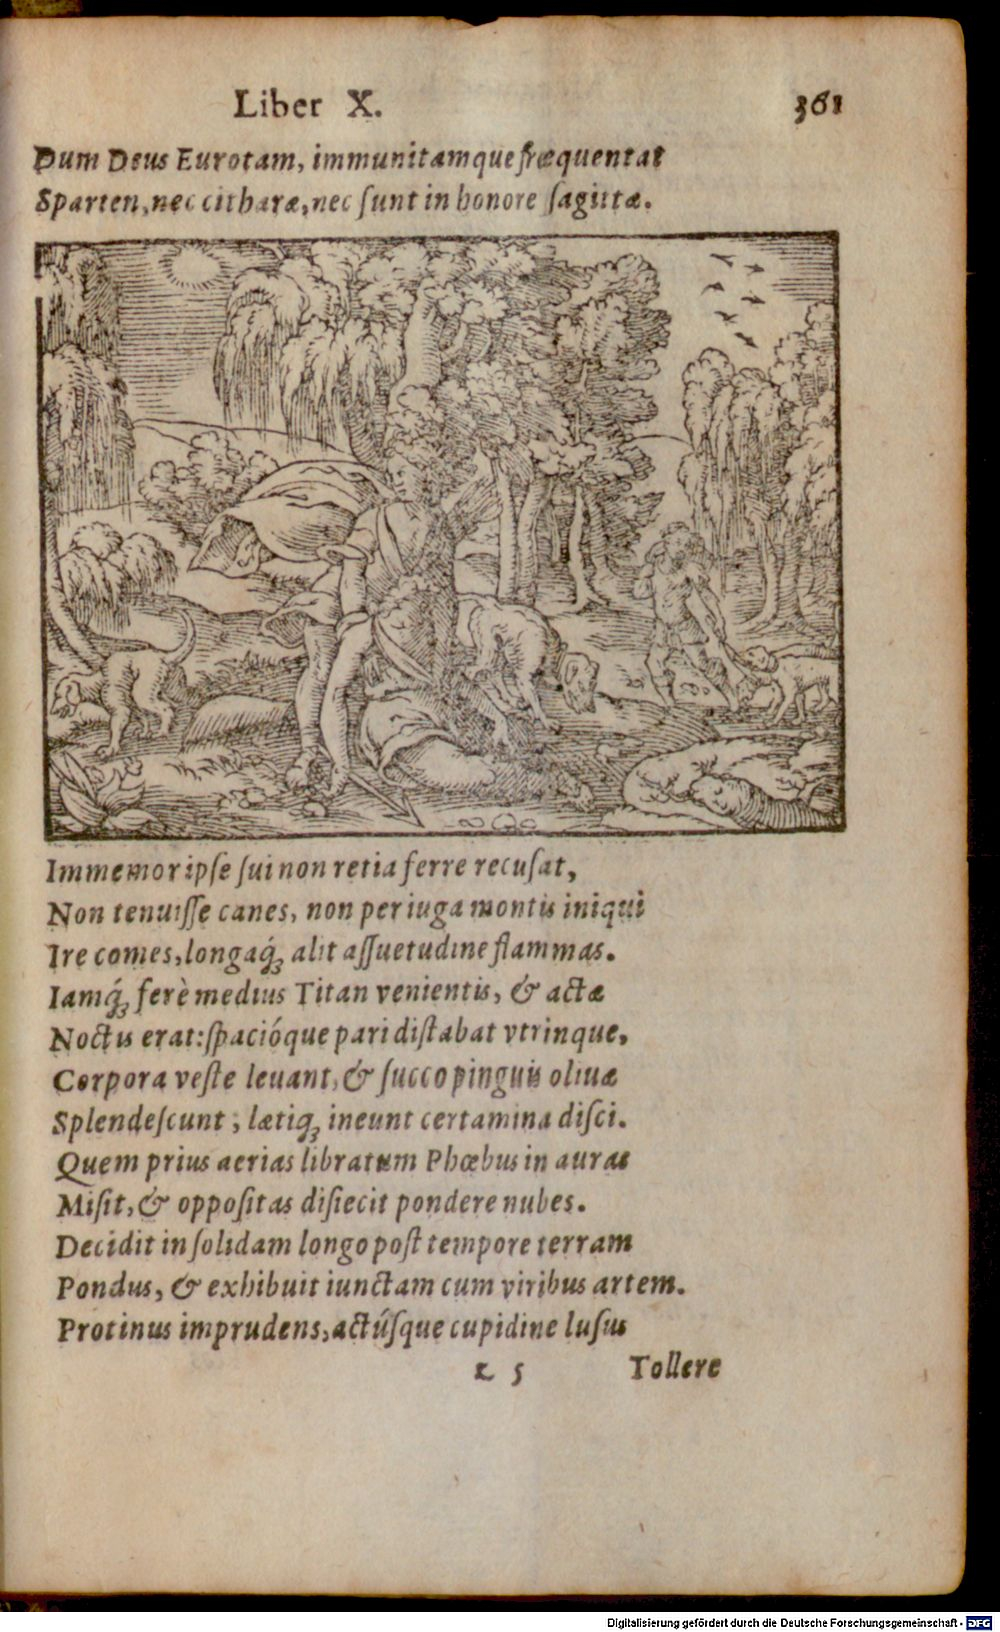 Liber X. 361
Dum Deus Eurotam, immunitamque fræquentat
Sparten, nec citharæ, nec ſunt in honore ſagittæ.
Immemor ipſe ſui non retia ferre recuſat,
Non tenuiſſe canes, non per iuga montis iniqui
Ire comes, longaq́ꝫ alit aſſuetudine flammas.
Iamq́ꝫ ferè medius Titan venientis, & actæ
Noctis erat: ſpacióque pari diſtabat vtrinque,
Corpora veſte leuant, & ſucco pinguis oliuæ
Splendeſcunt; lætiqꝫ ineunt certamina diſci.
Quem prius aerias libratum Phœbus in auras
Miſit, & oppoſitas diſiecit pondere nubes.
Decidit in ſolidam longo poſt tempore terram
Pondus, & exhibuit iunctam cum viribus artem.
Protinus imprudens, actúſque cupidine luſus
z 5 Tollere
Digitalisierung gefördert durch die Deutsche Forschungsgemeinschaft - DFG